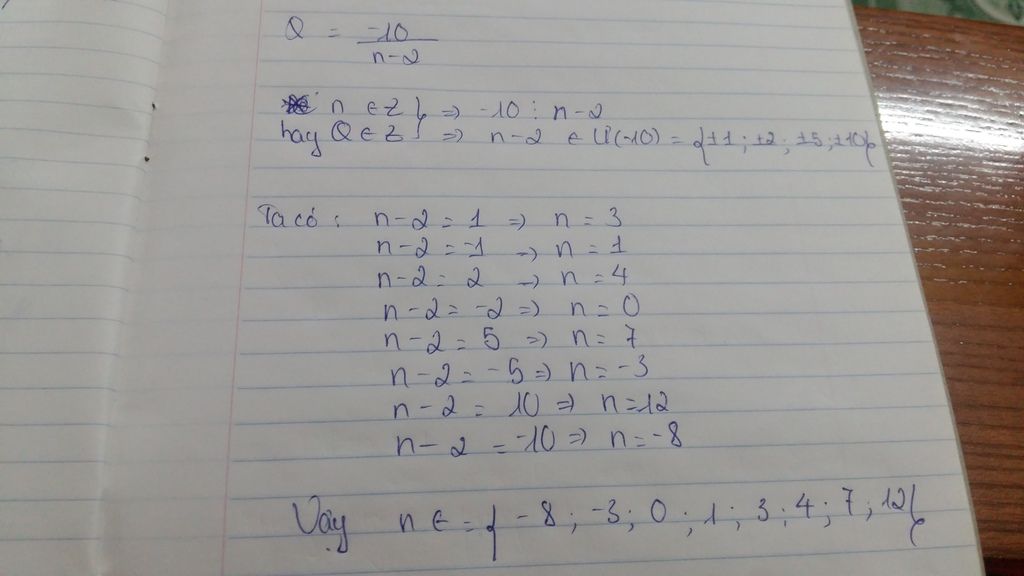 Q = -10 / n-2
n ∈ Z } => -10 ⋮ n-2
hay Q ∈ Z } => n-2 ∈ Ư(-10) = {±1; ±2; ±5; ±10}
Ta có: n-2 = 1 => n = 3
n-2 = -1 => n = 1
n-2 = 2 => n = 4
n-2 = -2 => n = 0
n-2 = 5 => n = 7
n-2 = -5 => n = -3
n-2 = 10 => n = 12
n-2 = -10 => n = -8
Vậy n ∈ = { -8; -3; 0; 1; 3; 4; 7; 12}